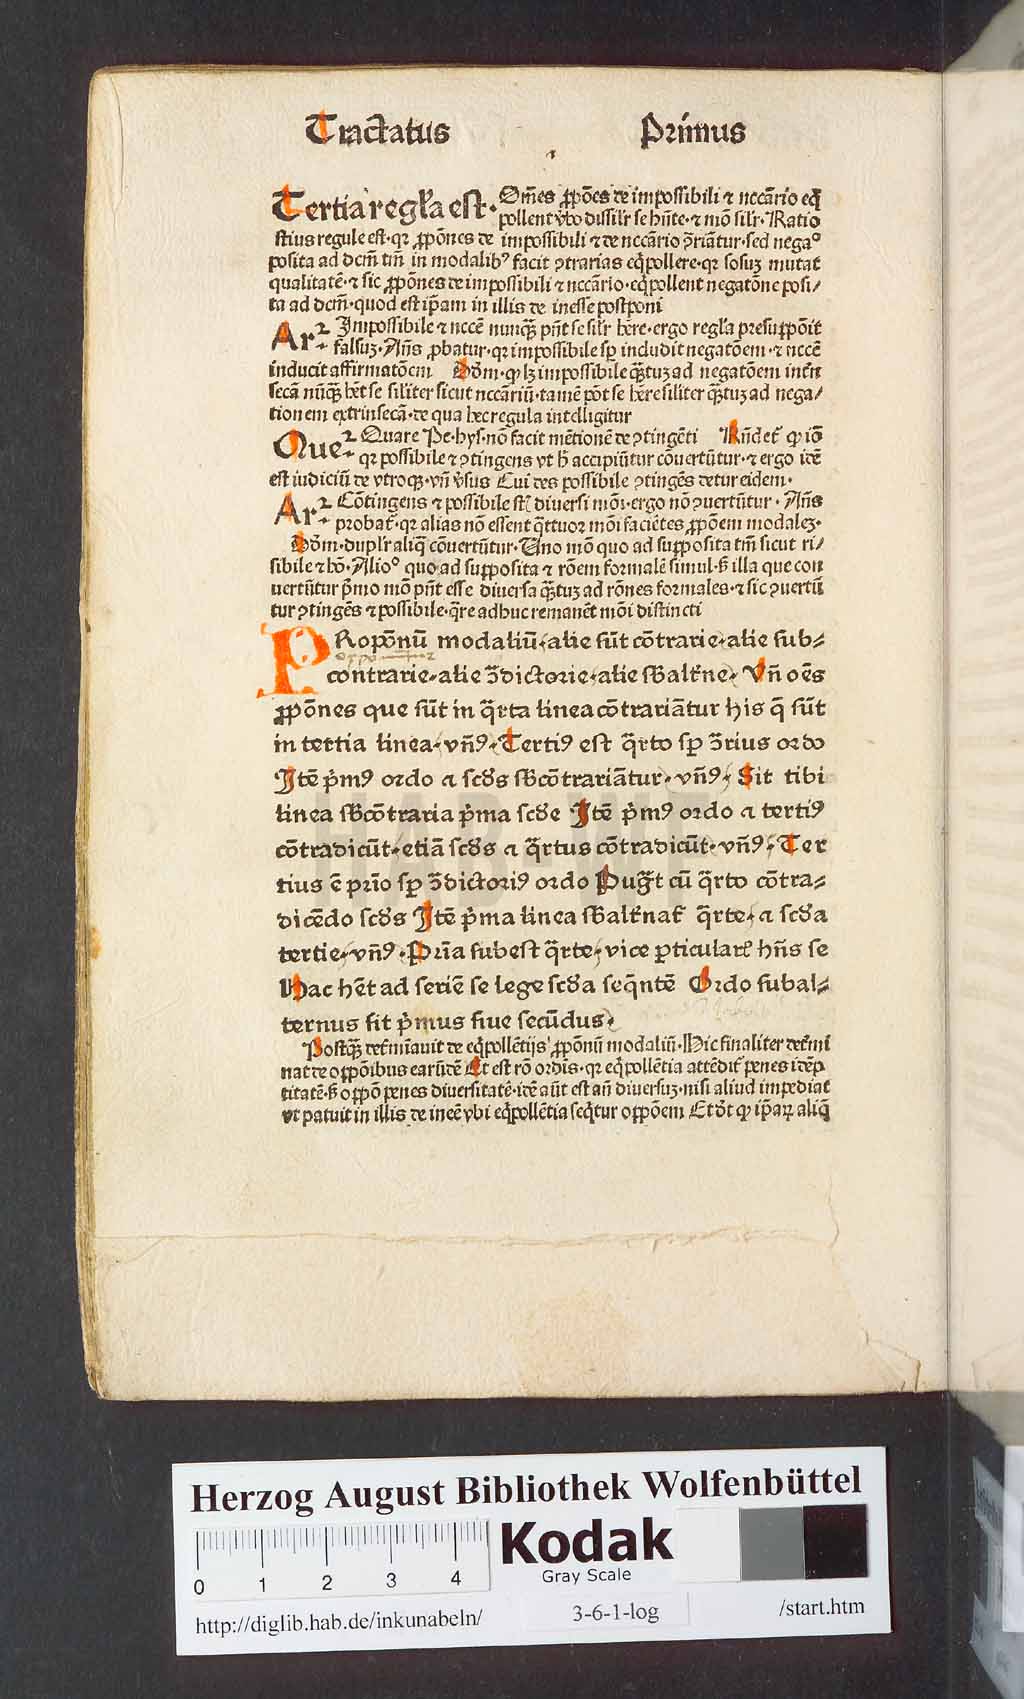 Tractatus Primus
Tertia regl'a est. Om̄es ꝓpōes de impossibili ⁊ nccārio eq̄
pollent v̓bo dissilr̄ se hn̄te. ⁊ mō silr̄. Ratio
stius regule est. qr ꝓpōnes de impossibili ⁊ de nccārio ꝯ̄riāt̄ur. sed nega°
posita ad dcm̄ tm̄ in modalibꝰ facit ꝯtrarias eq̄pollere. qr sosuꝫ mutat
qualitatē. ⁊ sic ꝓpōnes de impossibili ⁊ nccārio. eq̄pollent negatōne posi/
ta ad dcm̄. quod est ip̄am in illis de inesse postponi
Ar2. Impossibile ⁊ nccē nunqꝫ pn̄t se silr̄ hēre. ergo regl'a presuppōit
falsuꝫ. An̄s ꝓbatur. qr impossibile sꝑ includit negatōem. ⁊ nccē
inducit affirmatōem Dōm. ꝙ lꝫ impossibile qꝫtuꝫ ad negatōem intrī
secā nūqꝫ hēt se siliter sicut nccāriū. tamē pōt se hēre siliter qꝫtuꝫ ad nega/
tionem extrinsecā. de qua hec regula intelligitur
Que2. Quare Pe. hys. nō facit mētionē de ꝯtingēti Rn̄det̄ ꝙ iō
qr possibile ⁊ ꝯtingens vt h̄ accipiūtur cōuertūtur. ⁊ ergo idē
est iudiciū de vtroqꝫ. vn̄ v̓sus Cui des possibile ꝯtingēs detur eidem.
Ar2. Cōtingens ⁊ possibile st̄ diuersi mōi. ergo nō ꝯuertūtur. An̄s
probat̄. qr alias nō essent q̄ttuor mōi faciētes ꝓpōem modaleꝫ.
Dōm. duplr̄ aliq̄ cōuertūtur. Uno mō quo ad supposita tm̄ sicut ri/
sibile ⁊ hō. Alio° quo ad supposita ⁊ rōem formalē simul. h̄ illa que con
uertūtur p̄mo mō pn̄t esse diuersa qꝫtuꝫ ad rōnes formales. ⁊ sic ꝯuertū
tur ꝯtingēs ⁊ possibile. q̄re adhuc remanēt mōi distincti
PRopōnū modaliū. alie sūt cōtrarie. alie sub-
contrarie. alie ꝯ̄dictorie. alie sƀalt̄ne. Vn̄ oēs
ꝓpōnes que sūt in q̄rta linea cōtrariātur his q̄ sūt
in tertia linea. vn̄ꝰ. Tertiꝰ est q̄rto sꝑ ꝯ̄rius ordo
Itē p̄mꝰ ordo a scd̄s sƀcōtrariātur. vn̄ꝰ. Sit tibi
linea sƀcōtraria p̄ma scd̄e Itē p̄mꝰ ordo a tertiꝰ
cōtradicūt. etiā scd̄s a q̄rtus cōtradicūt. vn̄ꝰ. Ter
tius ē prīo sꝑ ꝯ̄dictoriꝰ ordo Pug̓t cū q̄rto cōtra-
dicēdo scd̄s Itē p̄ma linea sƀalt̄nat̄ q̄rte. a scd̄a
tertie. vn̄ꝰ. Prīa subest q̄rte. vice ꝑticularē hn̄s se
Hac hēt ad seriē se lege scd̄a seq̄ntē Ordo subal-
ternus sit p̄mus siue secūdus.
Postqꝫ det̄mīauit de eq̄pollētijs ꝓpōnū modaliū. Hic finaliter det̄mi
nat de oppōibus earūdē Et est rō ordis. qr eq̄pollētia attēdit̄ penes idēp
titatē. h̄ oppō penes diuersitatē. idē aūt est an̄ diuersuꝫ. nisi aliud impediat
vt patuit in illis de ineē vbi eq̄pollētia seq̄tur oppōem Et d̄t ꝙ ip̄aꝝ aliq̄
HAB WF
Herzog August Bibliothek Wolfenbüttel
0 1 2 3 4
Kodak
Gray Scale
http://diglib.hab.de/inkunabeln/ 3-6-1-log /start.htm